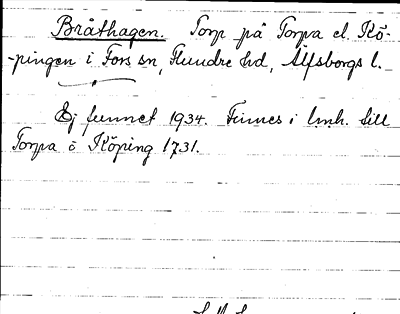 Bråthagen. Torp på Torpa el. Kö-
-pingen i Fors sn, Flundre hd, Älfsborgs l.
Ej funnet 1934. Finnes i lmh. till
Torpa o Köping 1731.